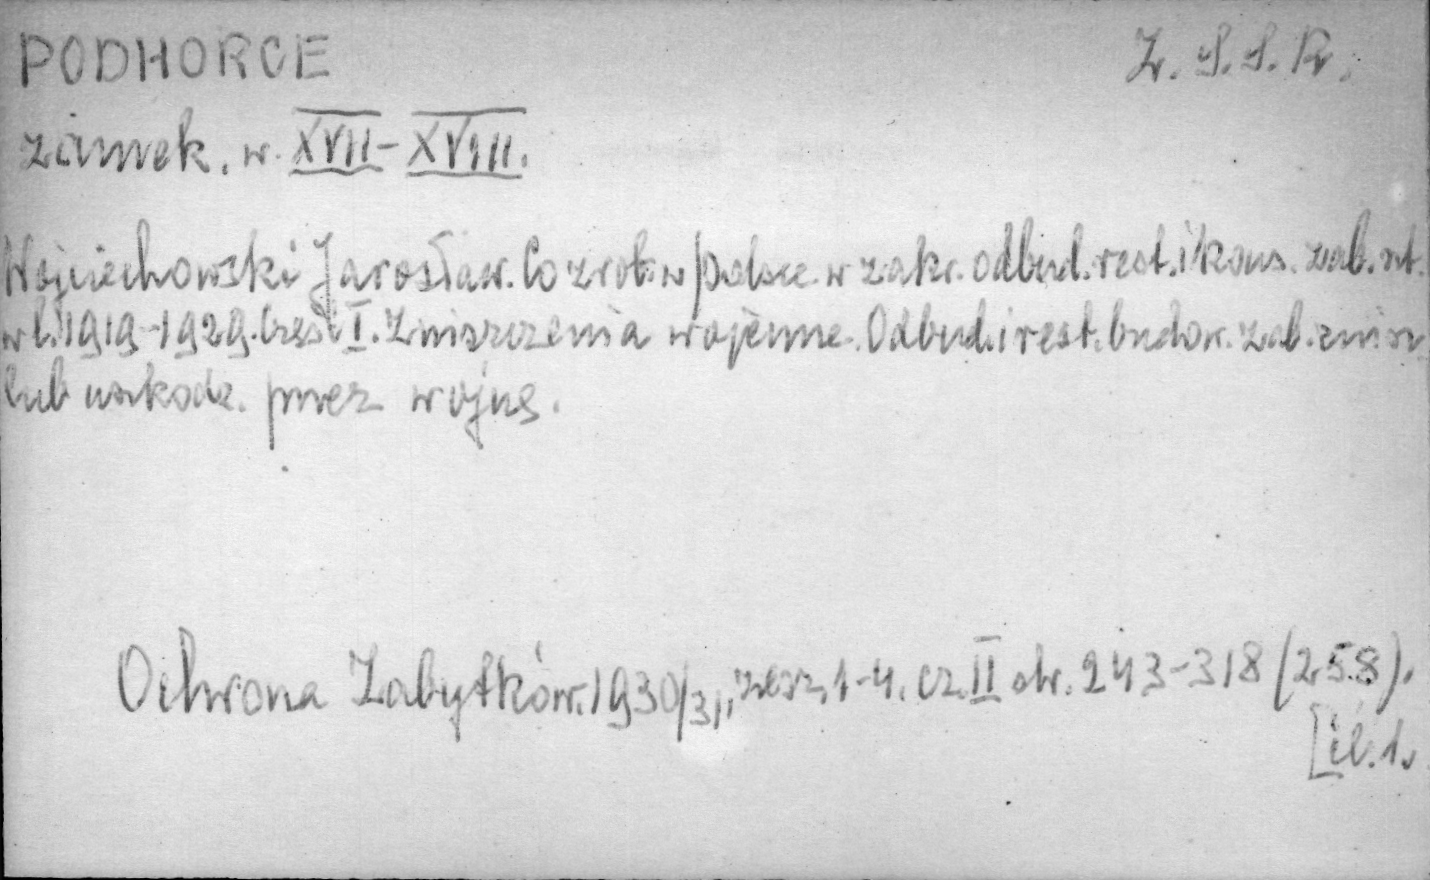 PODHORCE Z.S.S.R.
zamek. w. XVII-XVIII.
Wojciechowski Jarosław. Co zrob. w Polsce w zakr. odbud. rest. i kons. zab. szt.
w l. 1919-1929. Część I. Zniszczenia wojenne. Odbud. i rest. budow. zab. znisz.
lub uszkodz. przez wojnę.
Ochrona Zabytków. 1930/31, zesz. 1-4. cz. II str. 243-318 (258).
[il. 1.